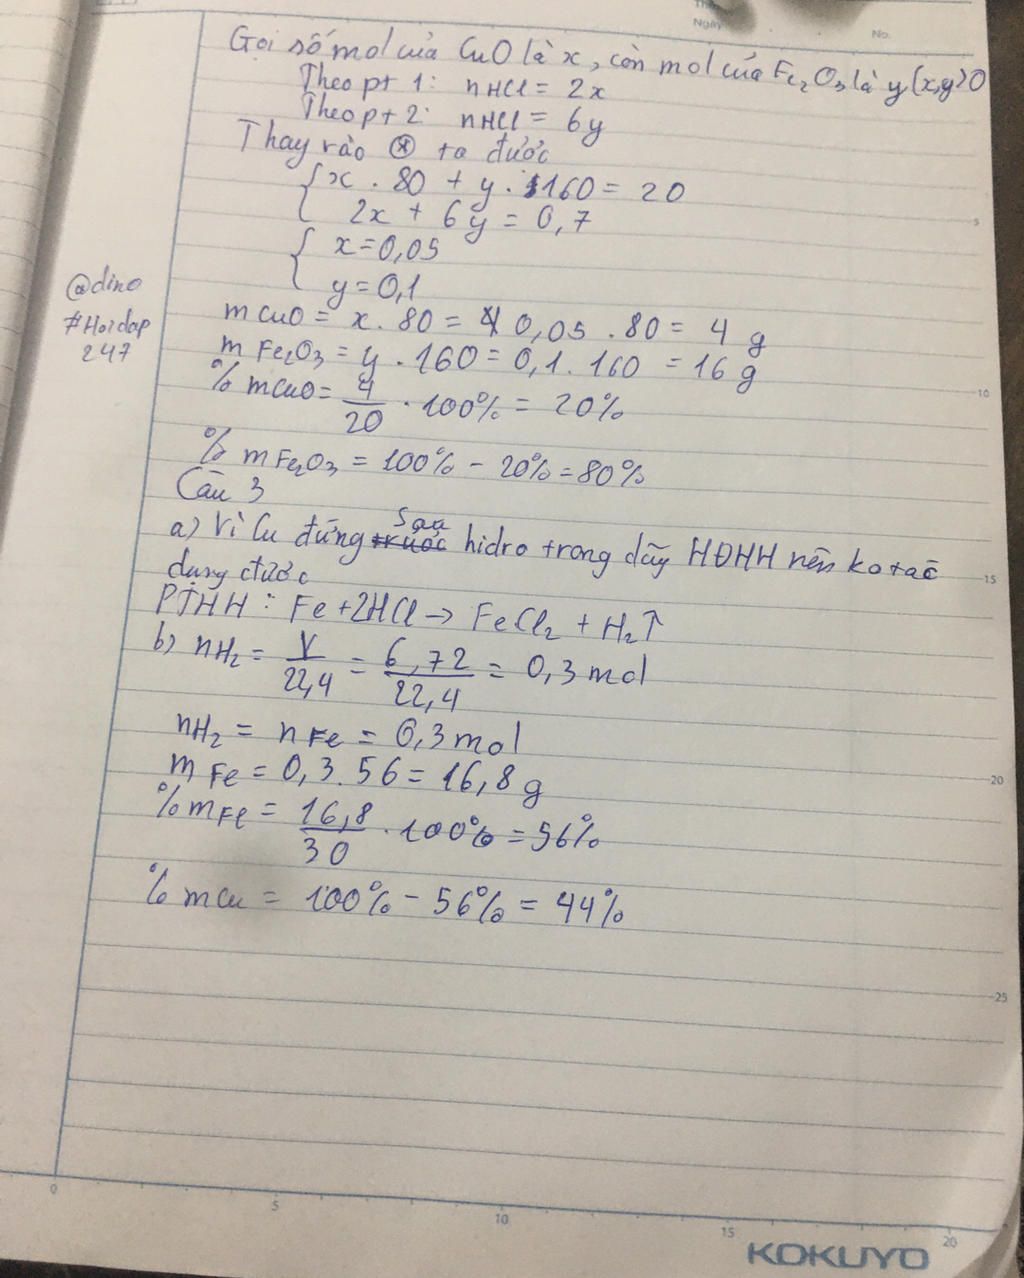 Ngày
No.
Gọi số mol của CuO là x, còn mol của Fe2O3 là y (x,y>0
Theo pt 1: nHCl = 2x
Theo pt 2: nHCl = 6y
Thay vào (*) ta được
x . 80 + y . 160 = 20
2x + 6y = 0,7
x = 0,05
y = 0,1
@dino
#Hoidap
247
mCuO = x . 80 = 0,05 . 80 = 4 g
mFe2O3 = y . 160 = 0,1 . 160 = 16 g
% mCuO = 4/20 . 100% = 20%
% mFe2O3 = 100% - 20% = 80%
Câu 3
a) Vì Cu đứng sau hidro trong dãy HĐHH nên ko tác
dụng được
PTHH : Fe + 2HCl → FeCl2 + H2↑
b) nH2 = V/22,4 = 6,72/22,4 = 0,3 mol
nH2 = nFe = 0,3 mol
mFe = 0,3 . 56 = 16,8 g
% mFe = 16,8/30 . 100% = 56%
% mCu = 100% - 56% = 44%
5
10
15
20
25
0 5 10 15 20
KOKUYO